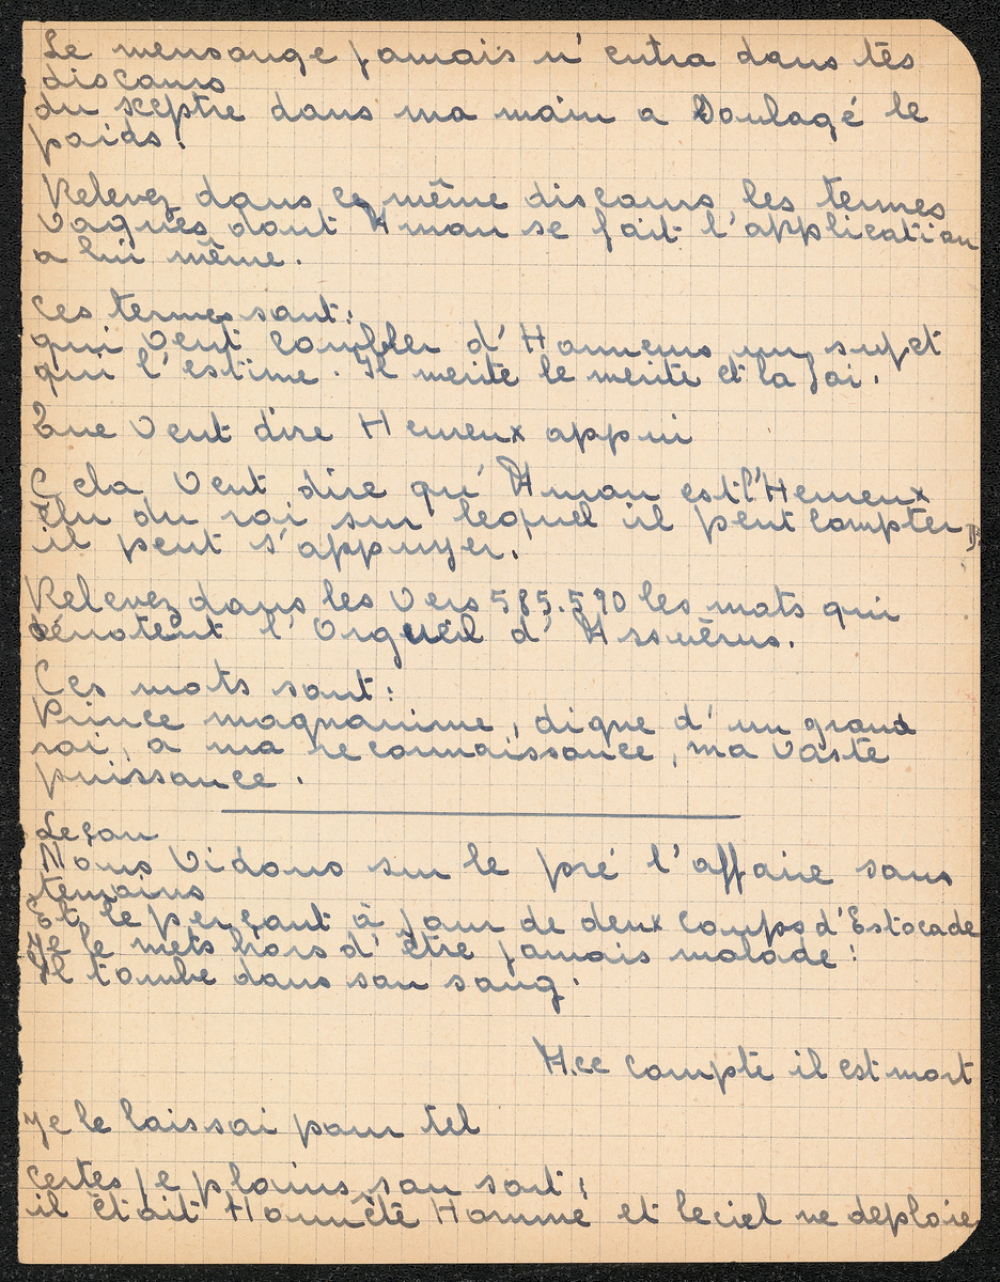 Le mensonge jamais n' entra dans tes
discours
du sceptre dans ma main a Soulagé le
poids!
Relevez dans ce même discours les termes
vagues dont Aman se fait l'application
a lui même.
Ces termes sont:
qui veut combler d' Honneurs un sujet
qui l'estime. Il merite le merite et la foi.
Que veut dire Heureux appui
Cela veut dire qu' Aman est l'Heureux
Elu du roi sur lequel il peut compter
il peut s'appuyer.
Relevez dans les Vers 585.590 les mots qui
dénotent l' Orgueil d' Assuêrus.
Ces mots sont:
Prince magnanime, digne d' un grand
roi, a ma reconnaissance, ma vaste
puissance.
Leçon
Nous Vidons sur le pré l'affaire sans
temoins
Et le perçant à jour de deux coups d'Estocade
Je le mets hors d' être jamais malade!
Il tombe dans son sang.
A ce compte il est mort
Je le laissai pour tel
Certes je plains son sort;
il était Honnête Homme et le ciel ne deploie